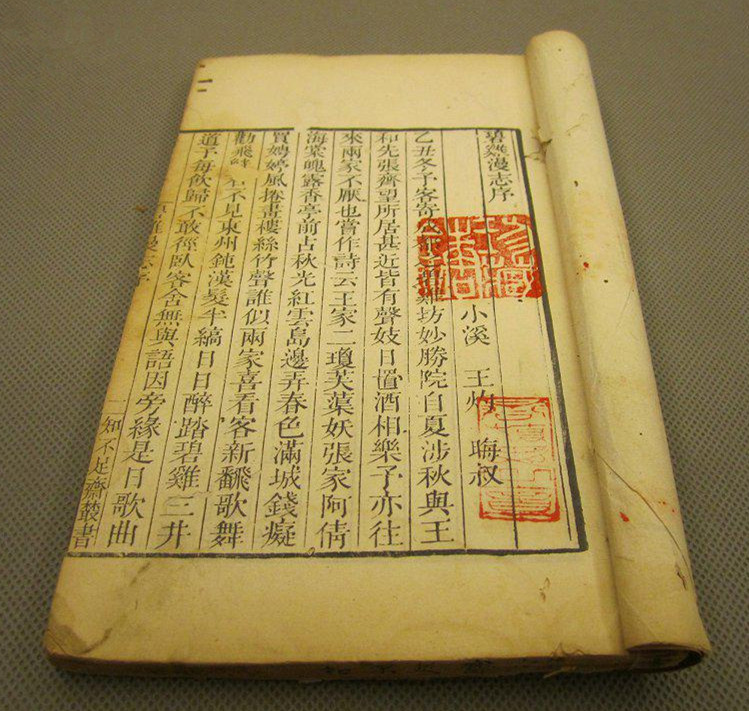 碧雞漫志序
小溪 王灼 晦叔
乙丑冬予客寄成都之碧雞坊妙勝院自夏涉秋與王
和先張齊望所居甚近皆有聲妓日置酒相樂予亦往
來兩家不厭也嘗作詩云王家二瓊芙蕖妖張家阿倩
海棠魄露香亭前占秋光紅雲島邊弄春色滿城錢癡
買娉婷風捲畫樓絲竹聲誰似兩家喜看客新翻歌舞
勸飛觥君不見東州鈍漢髮半縞日日醉踏碧雞三井
道予每飲歸不敢徑臥客舍無與語因旁緣是日歌曲
知不足齋叢書